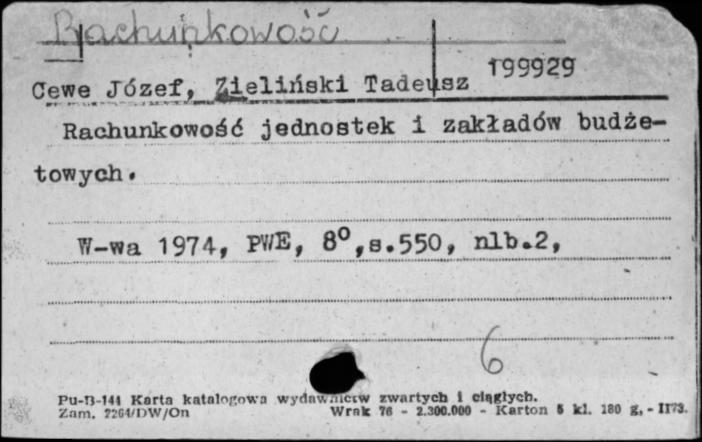 Rachunkowość
199929
Cewe Józef, Zieliński Tadeusz
Rachunkowość jednostek i zakładów budże-
towych.
W-wa 1974, PWE, 8⁰,s.550, nlb.2,
6
Pu-B-144 Karta katalogowa wydawnictw zwartych i ciągłych.
Zam. 2264/DW/On Wrak 76 - 2.300.000 - Karton 5 kl. 180 g. - II73.